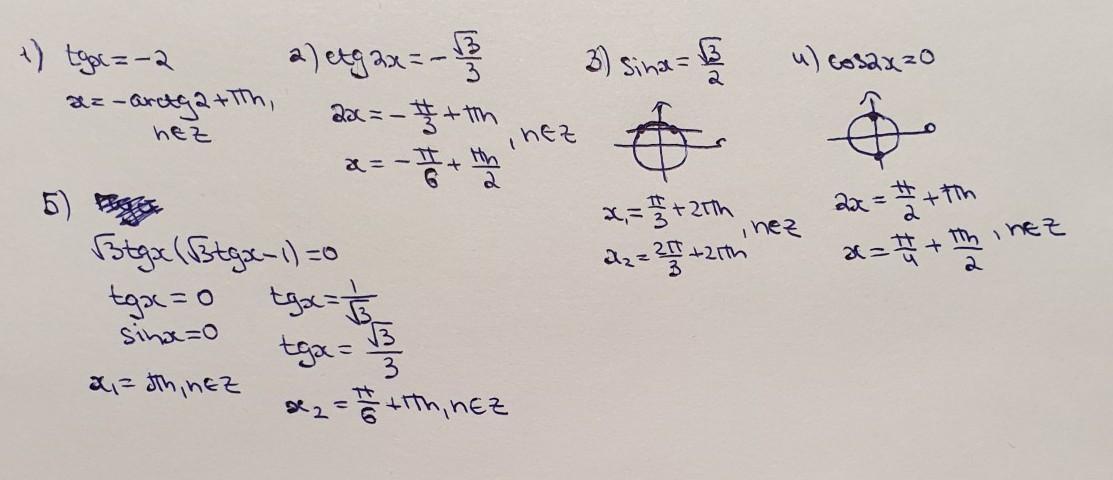 1) tgx = -2
x = -arctg2 + πn,
n∈Z
2) ctg 2x = -√3/3
2x = -π/3 + πn
x = -π/6 + πn/2 , n∈Z
3) sinx = √3/2
x₁ = π/3 + 2πn
x₂ = 2π/3 + 2πn , n∈Z
4) cos2x = 0
2x = π/2 + πn
x = π/4 + πn/2 , n∈Z
5)
√3tgx(√3tgx-1) = 0
tgx = 0
sinx = 0
x₁ = πn, n∈Z
tgx = 1/√3
tgx = √3/3
x₂ = π/6 + πn, n∈Z